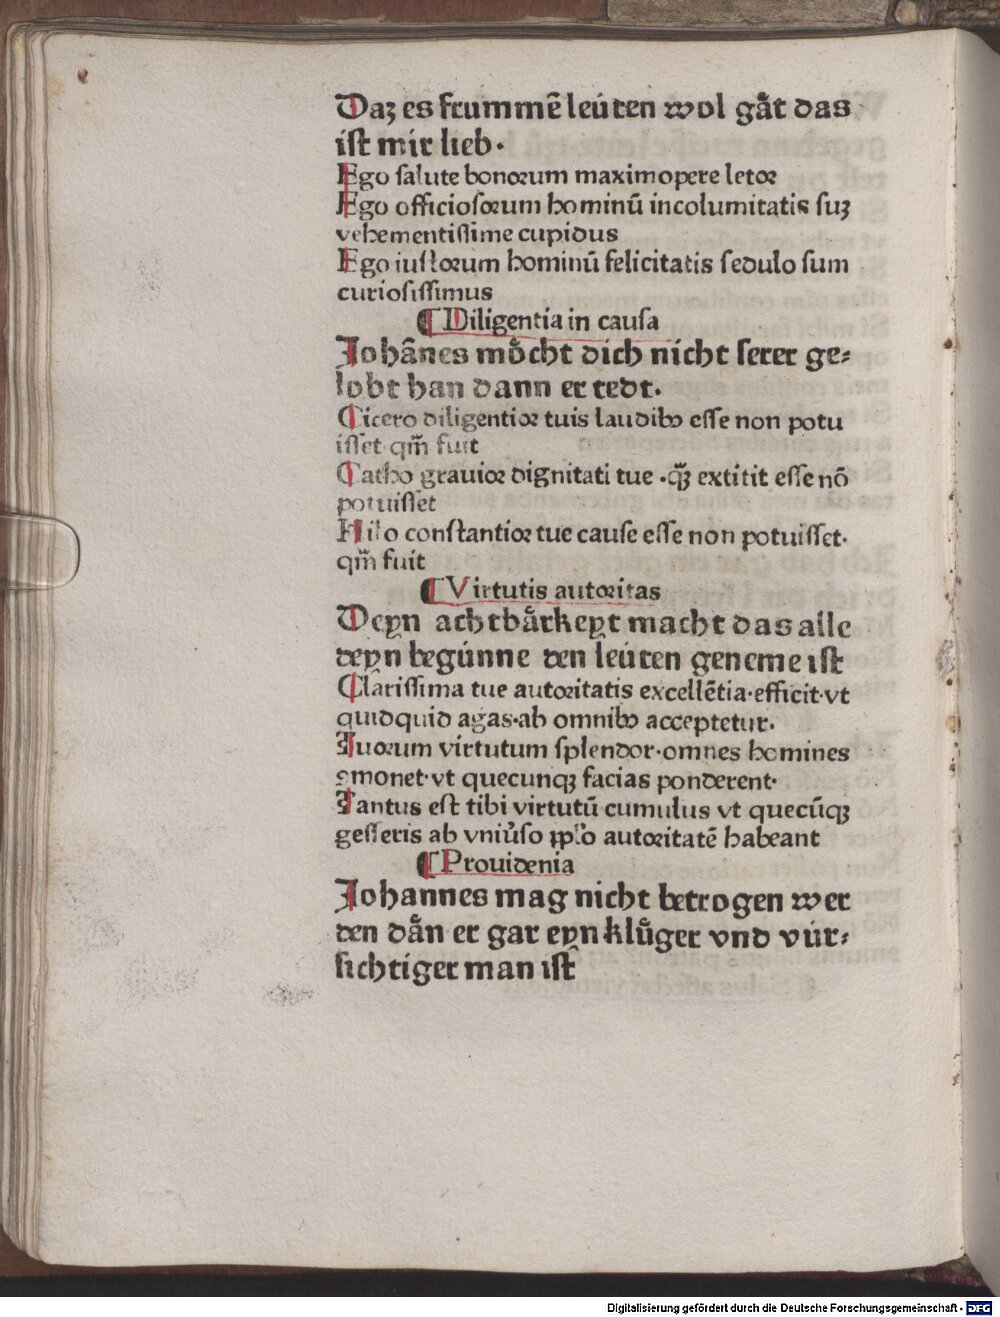 Daz es frummē leúten wol gåt das
ist mir lieb.
Ego salute bonorum maximopere letor
Ego officiosorum hominū incolumitatis suꝫ
vehementissime cupidus
Ego iustorum hominū felicitatis sedulo sum
curiosissimus
¶ Diligentia in causa
Johānes mo̊cht dich nicht serer ge⸗
lobt han dann er redt.
Cicero diligentior tuis laudibꝰ esse non potu
isset qm̄ fuit
Catho grauior dignitati tue ·qꝫ̄ extitit esse nō
potuisset
Hilo constantior tue cause esse non potuisset·
qm̄ fuit
¶ Virtutis autoritas
Deyn achtbårkeyt macht das alle
deyn begúnne den leúten geneme ist
Clārissima tue autoritatis excellētia·efficit·vt
quidquid agas·ab omnibꝰ acceptetur.
Tuorum virtutum splendor·omnes homines
emonet·vt quecunqꝫ facias ponderent·
Tantus est tibi virtutū cumulus vt quecūqꝫ
gesseris ab vniu̓so ꝓplo autoritatē habeant
¶ Prouidenia
Johannes mag nicht betrogen wer
den dån er gar eyn klůger vnd vúr⸗
sichtiger man ist
Digitalisierung gefördert durch die Deutsche Forschungsgemeinschaft - DFG